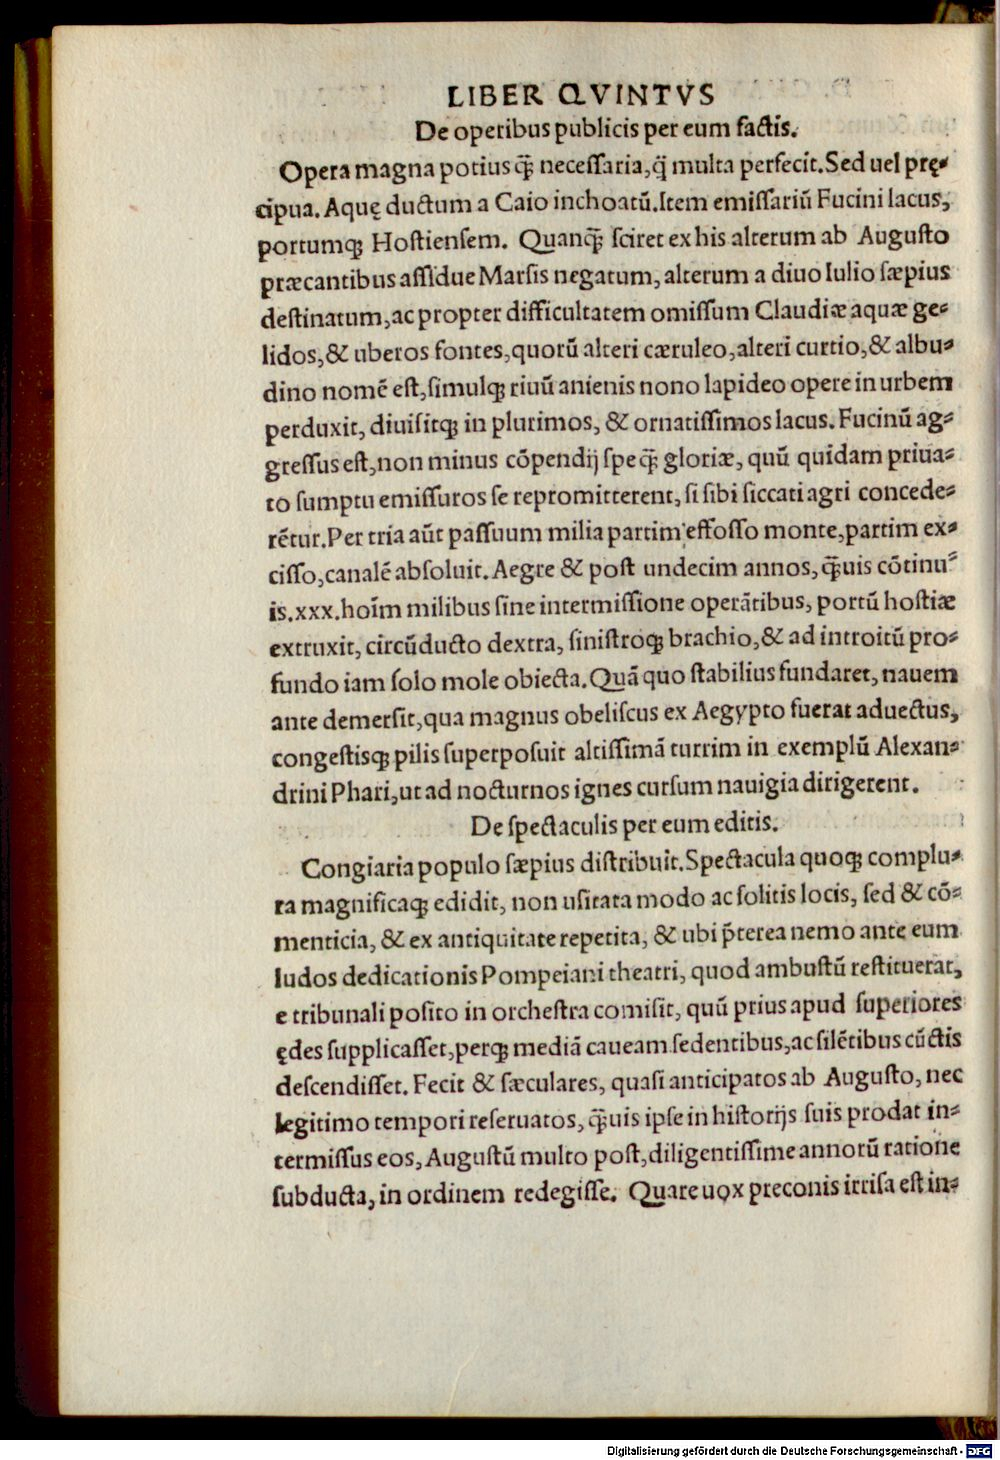 LIBER QVINTVS
De operibus publicis per eum factis.
Opera magna potius q̃ necessaria, q̃ multa perfecit. Sed uel prę-
cipua. Aquę ductum a Caio inchoatũ. Item emissariũ Fucini lacus,
portumq; Hostiensem. Quanq̃ sciret ex his alterum ab Augusto
præcantibus assidue Marsis negatum, alterum a diuo Iulio sæpius
destinatum, ac propter difficultatem omissum Claudiæ aquæ ge-
lidos, & uberos fontes, quorũ alteri cæruleo, alteri curtio, & albu-
dino nomẽ est, simulq; riuũ anienis nono lapideo opere in urbem
perduxit, diuisitq; in plurimos, & ornatissimos lacus. Fucinũ ag-
gressus est, non minus cõpendij spe q̃ gloriæ, quũ quidam priua-
to sumptu emissuros se repromitterent, si sibi siccati agri concede-
rẽtur. Per tria aũt passuum milia partim effosso monte, partim ex-
cisso, canalẽ absoluit. Aegre & post undecim annos, q̃uis cõtinu-
is .xxx. hoĩm milibus sine intermissione operãtibus, portũ hostiæ
extruxit, circũducto dextra, sinistroq; brachio, & ad introitũ pro-
fundo iam solo mole obiecta. Quã quo stabilius fundaret, nauem
ante demersit, qua magnus obeliscus ex Aegypto fuerat aduectus,
congestisq; pilis superposuit altissimã turrim in exemplũ Alexan-
drini Phari, ut ad nocturnos ignes cursum nauigia dirigerent.
De spectaculis per eum editis.
Congiaria populo sæpius distribuit. Spectacula quoq; complu-
ra magnificaq; edidit, non usitata modo ac solitis locis, sed & cõ-
menticia, & ex antiquitate repetita, & ubi p̃terea nemo ante eum
ludos dedicationis Pompeiani theatri, quod ambustũ restituerat,
e tribunali posito in orchestra comisit, quũ prius apud superiores
ędes supplicasset, perq; mediã caueam sedentibus, ac silẽtibus cũctis
descendisset. Fecit & sæculares, quasi anticipatos ab Augusto, nec
legitimo tempori reseruatos, q̃uis ipse in historijs suis prodat in-
termissus eos, Augustũ multo post, diligentissime annorũ ratione
subducta, in ordinem redegisse. Quare uox preconis irrisa est in-
Digitalisierung gefördert durch die Deutsche Forschungsgemeinschaft - DFG